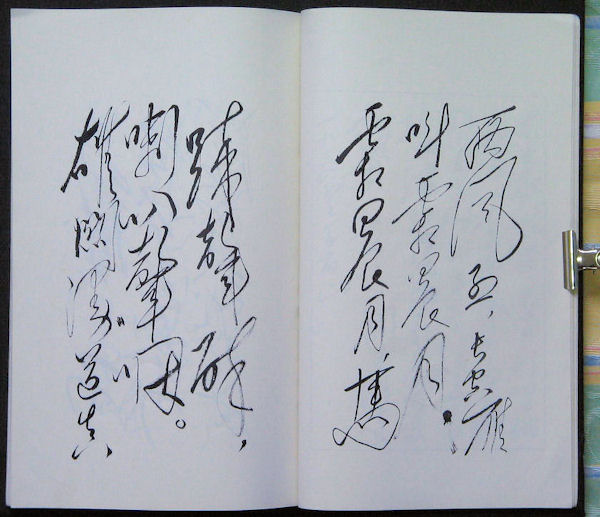 西风烈，长空雁
叫霜晨月。
霜晨月，馬
蹄聲碎，
喇叭聲咽。
雄關漫道真